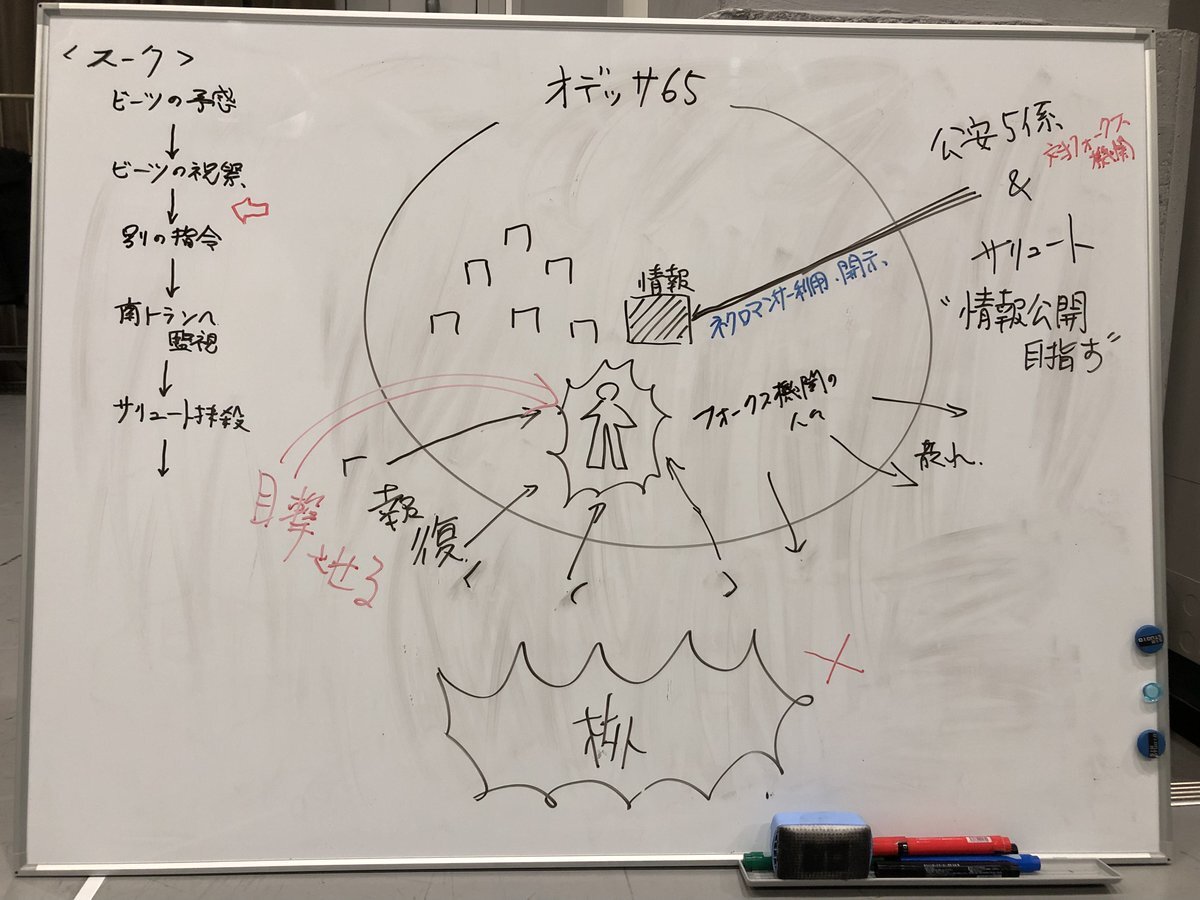 <スーク>
ビーツの予感
↓
ビーツの祝祭
↓
別の指令
↓
南トランへ
監視
↓
サリュート抹殺
↓
オデッサ65
公安5係
対フォークス
機関
&
サリュート
"情報公開
目指す"
情報
ネクロマンサー利用、開示、
フォークス機関の
人々
報
復
目撃
させる